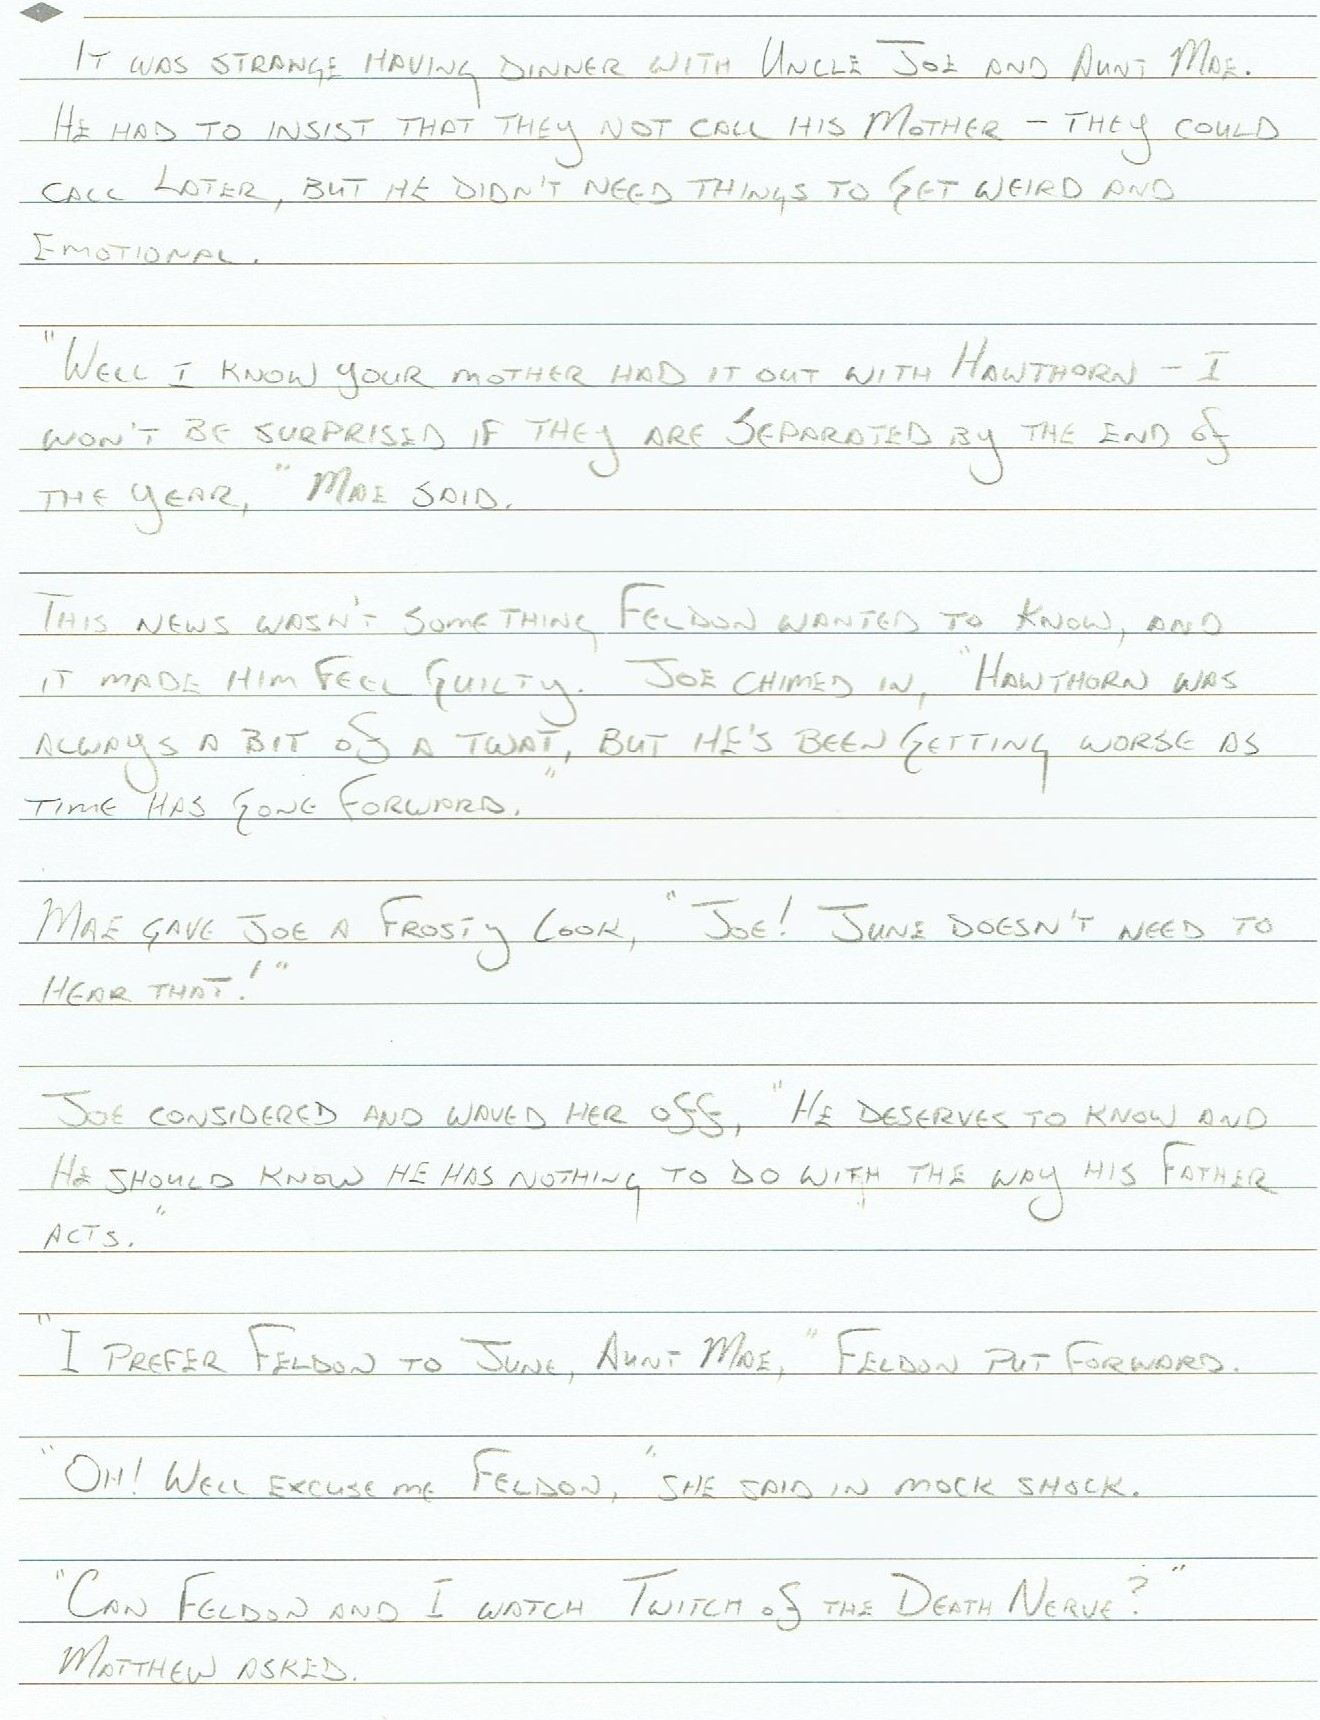 It was strange having dinner with Uncle Joe and Aunt Mae.
He had to insist that they not call his Mother - they could
call later, but he didn't need things to get weird and
emotional.
"Well I know your mother had it out with Hawthorn - I
won't be surprised if they are separated by the end of
the year," Mae said.
This news wasn't something Feldon wanted to know, and
it made him feel guilty. Joe chimed in, "Hawthorn was
always a bit of a twat, but he's been getting worse as
time has gone forward."
Mae gave Joe a frosty look, "Joe! June doesn't need to
hear that!"
Joe considered and waved her off, "He deserves to know and
he should know he has nothing to do with the way his Father
acts."
"I prefer Feldon to June, Aunt Mae," Feldon put forward.
"Oh! Well excuse me Feldon," she said in mock shock.
"Can Feldon and I watch Twitch of the Death Nerve?"
Matthew asked.